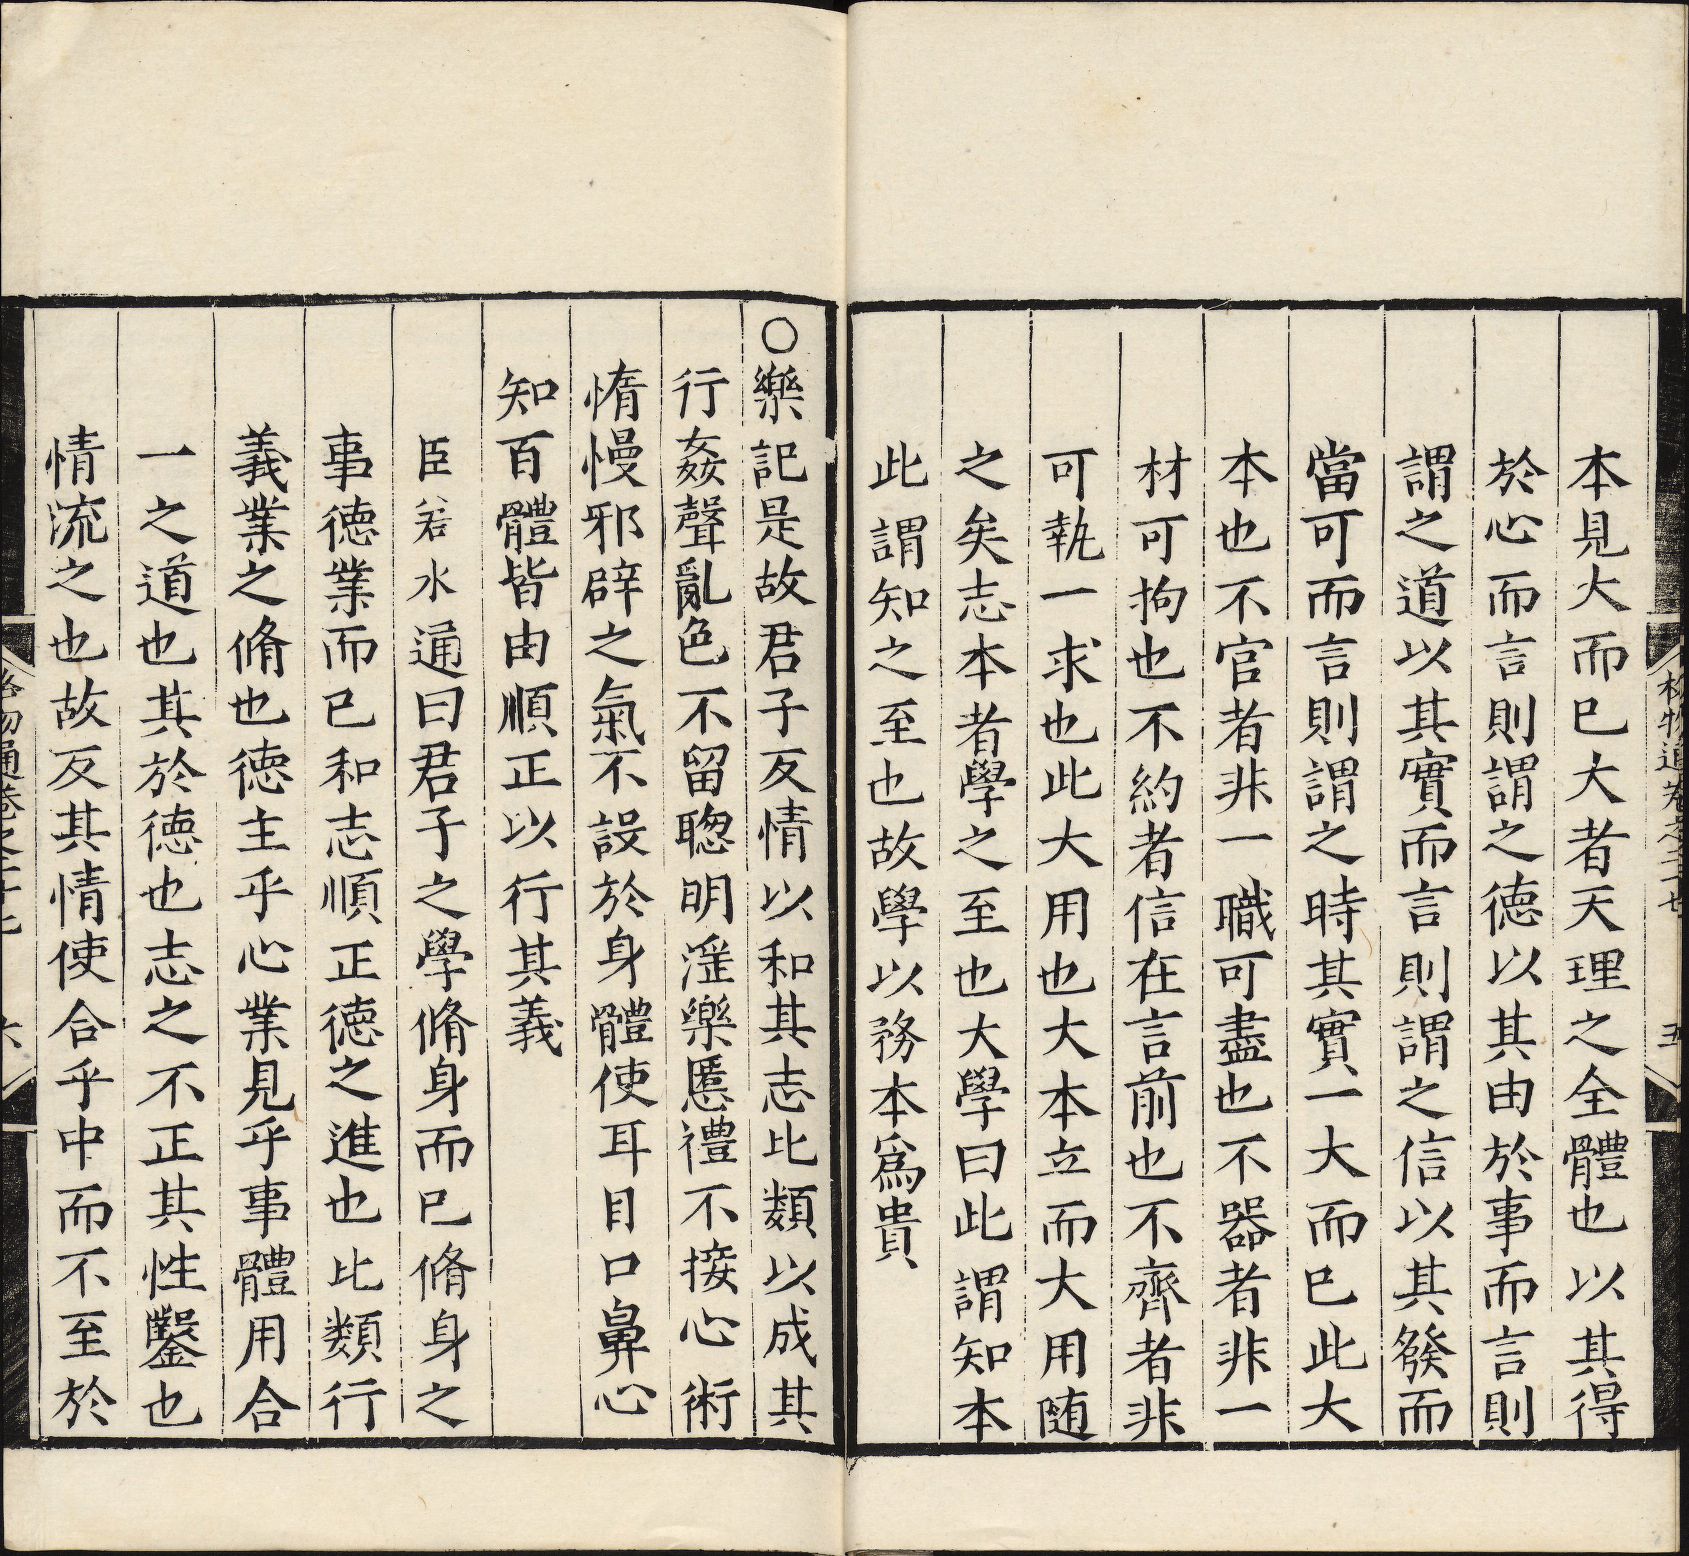 本見大而已大者天理之全體也以其得
於心而言則謂之德以其由於事而言則
謂之道以其實而言則謂之信以其發而
當可而言則謂之時其實一大而已此大
本也不官者非一職可盡也不器者非一
材可拘也不約者信在言前也不齊者非
可執一求也此大用也大本立而大用随
之矣志本者學之至也大學曰此謂知本
此謂知之至也故學以務本爲貴
〇樂記是故君子反情以和其志比類以成其
行姦聲亂色不留聰明淫樂慝禮不接心術
惰慢邪辟之氣不設於身體使耳目口鼻心
知百體皆由順正以行其義
臣若水通曰君子之學脩身而已脩身之
事德業而已和志順正德之進也比類行
義業之脩也德主乎心業見乎事體用合
一之道也其於德也志之不正其性鑿也
情流之也故反其情使合乎中而不至於